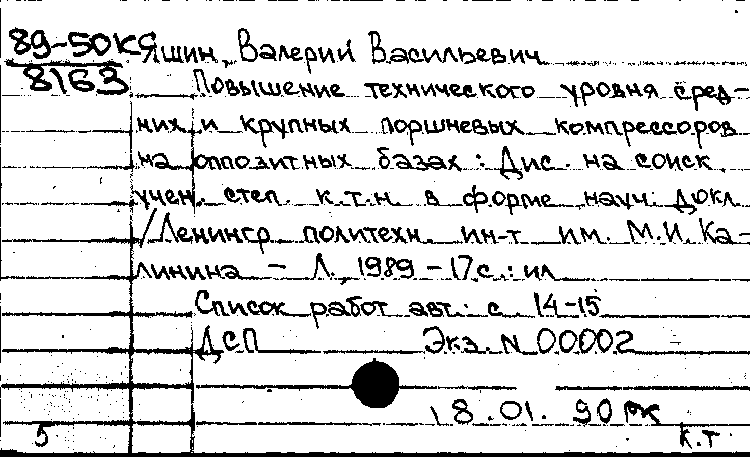 89-50К Яшин, Валерий Васильевич
8163 Повышение технического уровня сред-
них и крупных поршневых компрессоров
на оппозитных базах : Дис. на соиск.
учен. степ. к.т.н. в форме науч. докл
/Ленингр политехн. ин-т им. М.И. Ка-
линина - Л., 1989 - 17с. : ил
Список работ авт.: с. 14-15
ДСП Экз. N 00002
18.01. 90
5 к.т